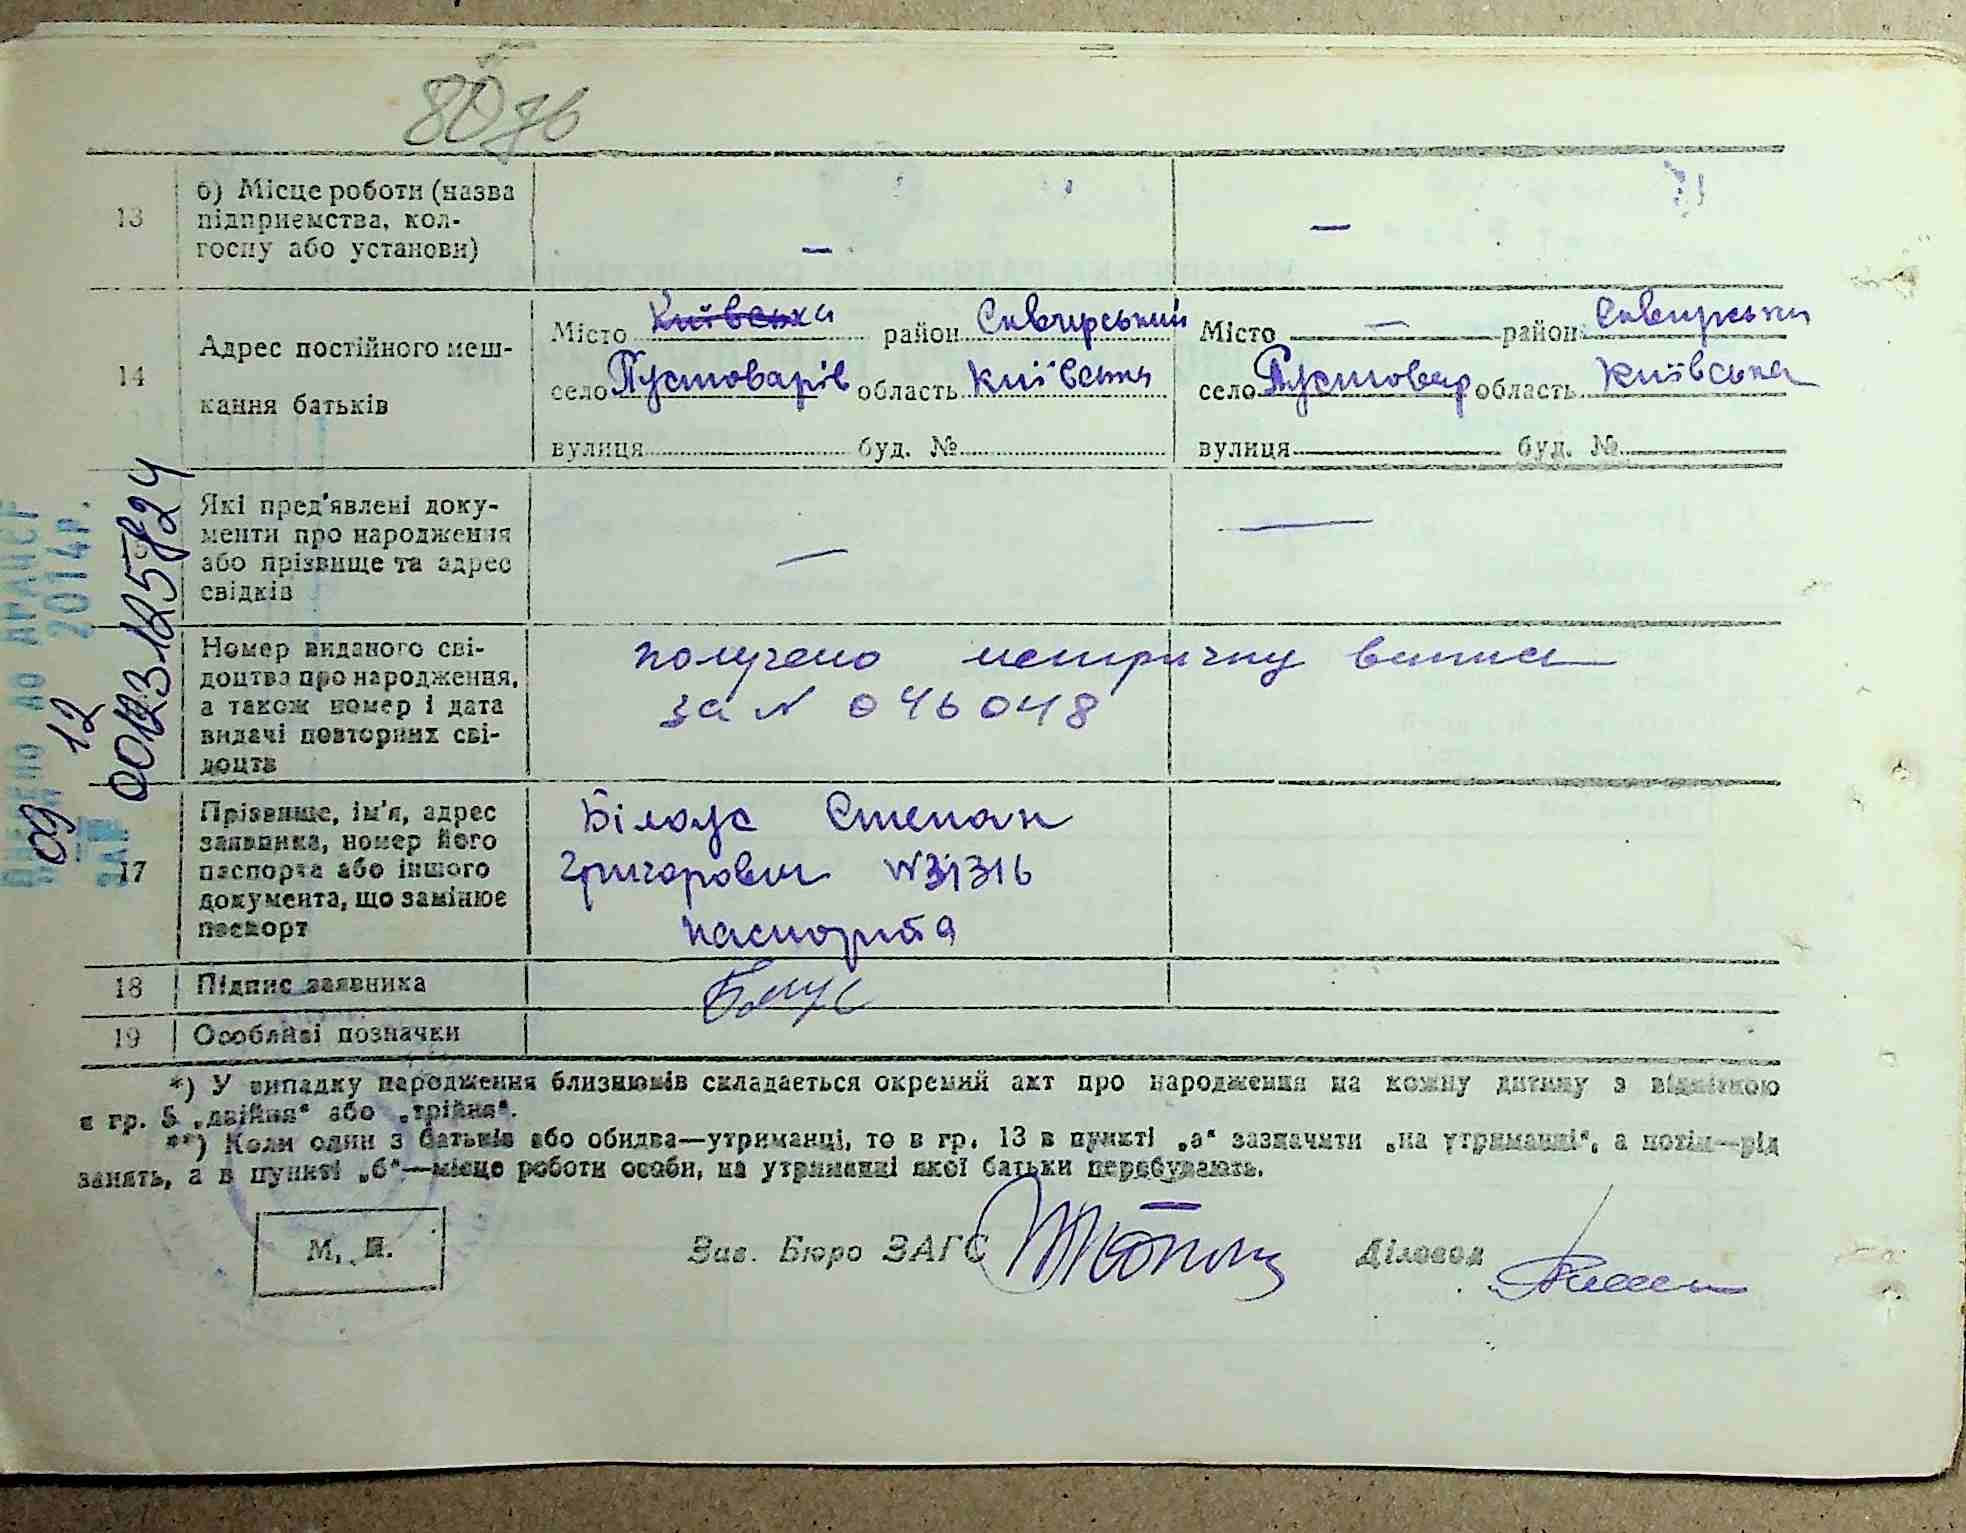 13
б) Місце роботи (назва
підприємства, кол-
госпу або установи)
—
—
14
Адрес постійного меш-
кання батьків
Місто Київська район Сквирський
село Пустоварів область Київська
вулиця буд. №
Місто — район Сквирськи
село Пустовар область Київська
вулиця буд. №
Які пред'явлені доку-
менти про народження
або прізвище та адрес
свідків
—
—
Номер виданого сві-
доцтва про народження,
а також номер і дата
видачі повторних сві-
доцтв
получено метричну випис
за N 046048
17
Прізвище, ім'я, адрес
заявника, номер його
паспорта або іншого
документа, що замінює
паспорт
Білоус Степан
Григорович N 31316
паспорта
18
Підпис заявника
19
Особливі позначки
*) У випадку народження близнюків складається окремий акт про народження на кожну дитину з відміткою
в гр. 5 „двійня“ або „трійня“.
**) Коли один з батьків або обидва—утриманці, то в гр. 13 в пункті „а“ зазначити „на утриманні“, а потім—рід
занять, а в пункті „б“—місце роботи особи, на утриманні якої батьки перебувають.
М. П.
Зав. Бюро ЗАГС
Діловод
ДО ДРАЦСГ
09 12 2014р.
00123125724